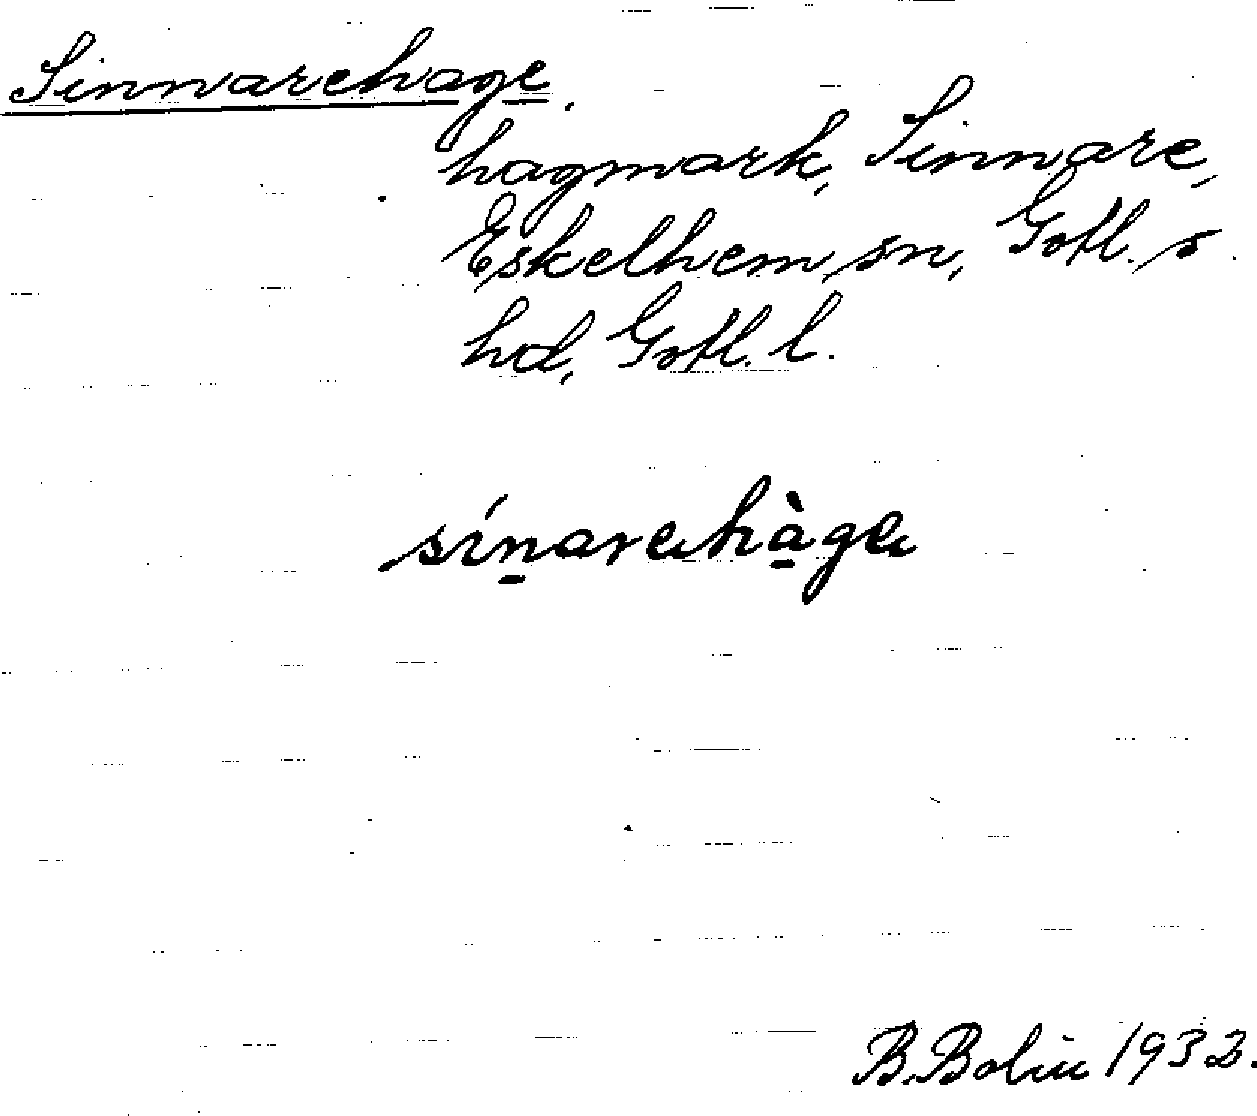 Sinnarehage.
hagmark, Sinnare,
Eskelhem sn, Gotl. s.
hd, Gotl. l.
sínarehàge
B. Bolin 1932.